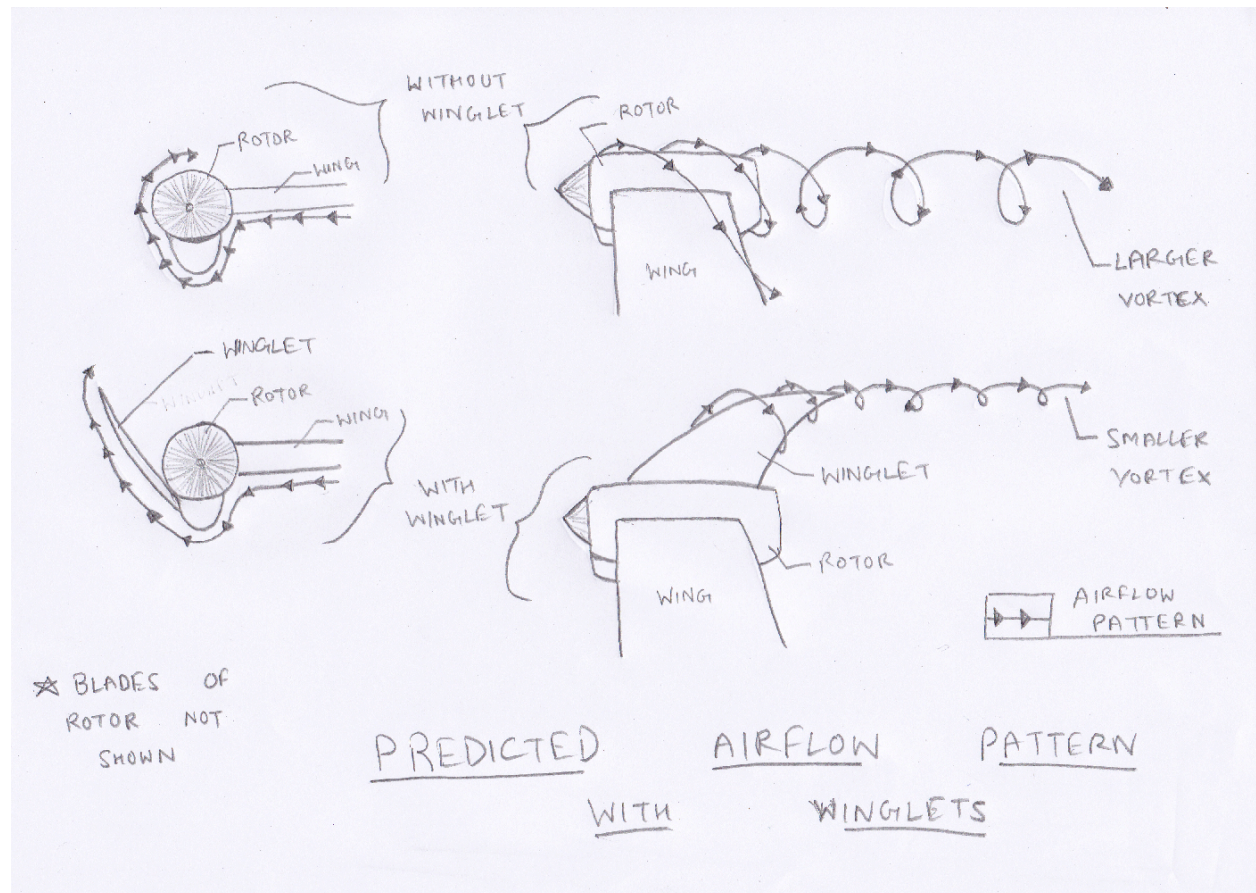 WITHOUT
WINGLET
ROTOR
WING
ROTOR
WING
LARGER
VORTEX
WINGLET
WINGLET
ROTOR
WING
WITH
WINGLET
WINGLET
SMALLER
VORTEX
ROTOR
WING
AIRFLOW
PATTERN
☆ BLADES OF
ROTOR NOT
SHOWN
PREDICTED AIRFLOW PATTERN
WITH WINGLETS